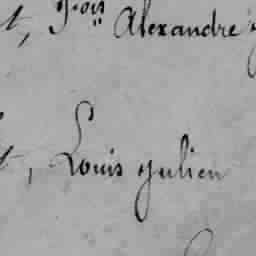 t, fois Alexandre
t, Louis Julien